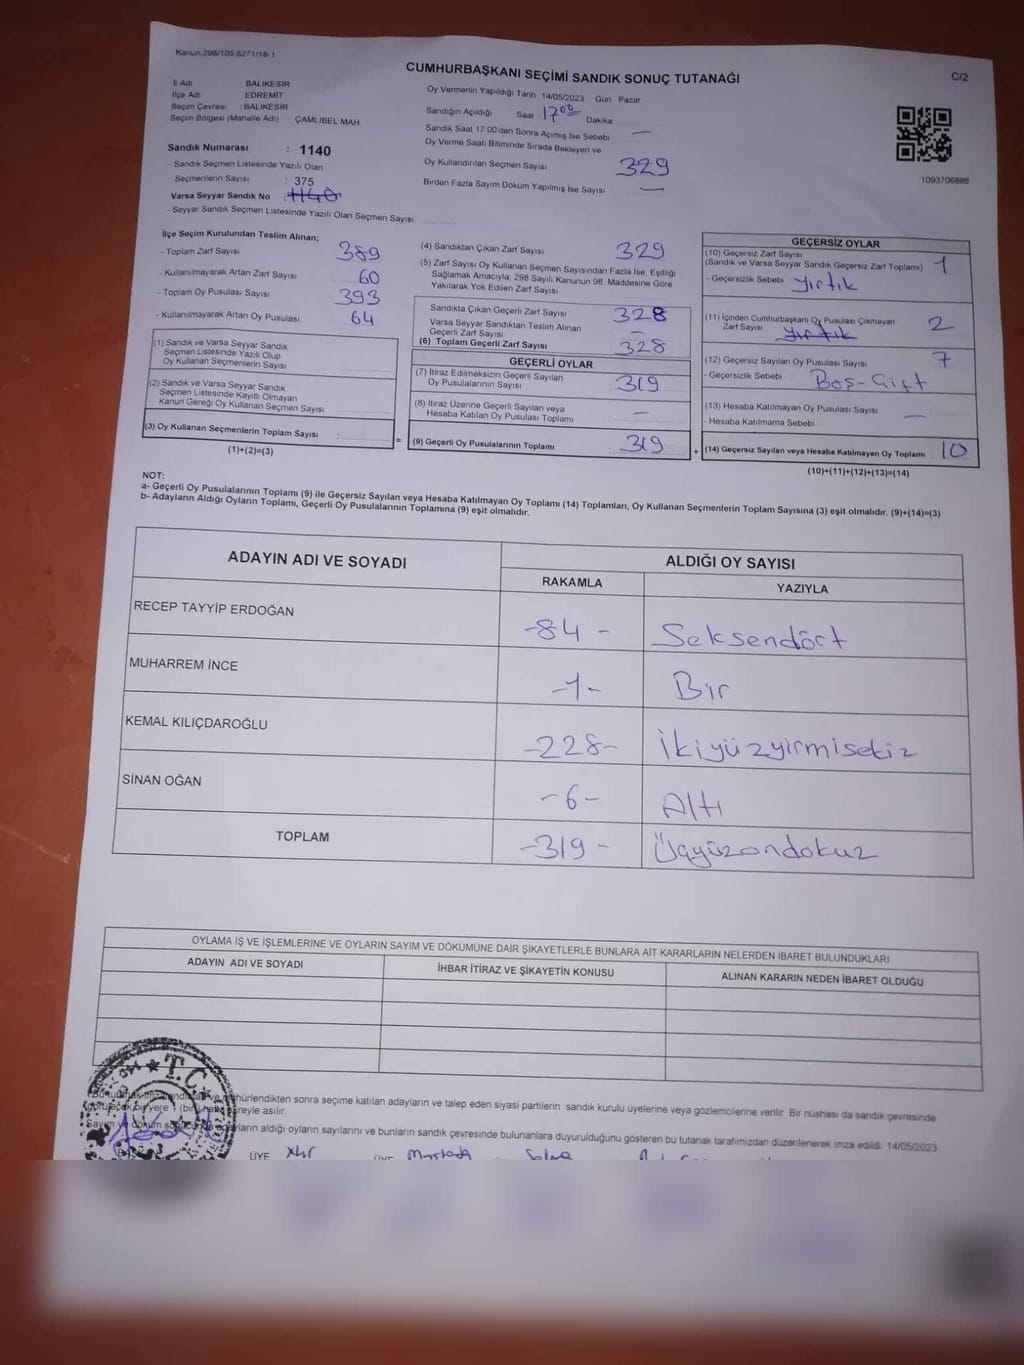 Kanun:298/105,6271/18-1
CUMHURBAŞKANI SEÇİMİ SANDIK SONUÇ TUTANAĞI
C/2
İl Adı BALIKESİR
İlçe Adı EDREMİT
Seçim Çevresi : BALIKESİR
Seçim Bölgesi (Mahalle Adı) : ÇAMLIBEL MAH
Oy Vermenin Yapıldığı Tarih 14/05/2023 Gün Pazar
Sandığın Açıldığı Saat 17 00 Dakika
Sandık Saat 17:00'den Sonra Açımış İse Sebebi —
Oy Verme Saati Bitiminde Sırada Bekleyen ve
Oy Kullandırılan Seçmen Sayısı 329
Birden Fazla Sayım Döküm Yapılmış İse Sayısı —
1093706888
Sandık Numarası : 1140
- Sandık Seçmen Listesinde Yazılı Olan
Seçmenlerin Sayısı : 375
Varsa Seyyar Sandık No : 1140
- Seyyar Sandık Seçmen Listesinde Yazılı Olan Seçmen Sayısı
İlçe Seçim Kurulundan Teslim Alınan;
- Toplam Zarf Sayısı 389
- Kullanılmayarak Artan Zarf Sayısı 60
- Toplam Oy Pusulası Sayısı 393
- Kullanılmayarak Artan Oy Pusulası 64
(1) Sandık ve Varsa Seyyar Sandık
Seçmen Listesinde Yazılı Olup
Oy Kullanan Seçmenlerin Sayısı
(2) Sandık ve Varsa Seyyar Sandık
Seçmen Listesinde Kayıtlı Olmayan
Kanun Gereği Oy Kullanan Seçmen Sayısı
(3) Oy Kullanan Seçmenlerin Toplam Sayısı :
(1)+(2)=(3)
(4) Sandıktan Çıkan Zarf Sayısı 329
(5) Zarf Sayısı Oy Kullanan Seçmen Sayısından Fazla İse, Eşitliği
Sağlamak Amacıyla, 298 Sayılı Kanunun 98. Maddesine Göre
Yakılarak Yok Edilen Zarf Sayısı
Sandıkta Çıkan Geçerli Zarf Sayısı 328
Varsa Seyyar Sandıktan Teslim Alınan
Geçerli Zarf Sayısı —
(6) Toplam Geçerli Zarf Sayısı 328
GEÇERLİ OYLAR
(7) İtiraz Edilmeksizin Geçerli Sayılan
Oy Pusulalarının Sayısı 319
(8) İtiraz Üzerine Geçerli Sayılan veya
Hesaba Katılan Oy Pusulası Toplamı —
= (9) Geçerli Oy Pusulalarının Toplamı 319
GEÇERSİZ OYLAR
(10) Geçersiz Zarf Sayısı
(Sandık ve Varsa Seyyar Sandık Geçersiz Zarf Toplamı) 1
- Geçersizlik Sebebi Yırtık
(11) İçinden Cumhurbaşkanı Oy Pusulası Çıkmayan
Zarf Sayısı Yırtık 2
(12) Geçersiz Sayılan Oy Pusulası Sayısı 7
- Geçersizlik Sebebi Boş-Çift
(13) Hesaba Katılmayan Oy Pusulası Sayısı —
- Hesaba Katılmama Sebebi
+ (14) Geçersiz Sayılan veya Hesaba Katılmayan Oy Toplamı 10
(10)+(11)+(12)+(13)=(14)
NOT:
a- Geçerli Oy Pusulalarının Toplamı (9) ile Geçersiz Sayılan veya Hesaba Katılmayan Oy Toplamı (14) Toplamları, Oy Kullanan Seçmenlerin Toplam Sayısına (3) eşit olmalıdır. (9)+(14)=(3)
b- Adayların Aldığı Oyların Toplamı, Geçerli Oy Pusulalarının Toplamına (9) eşit olmalıdır.
ADAYIN ADI VE SOYADI
ALDIĞI OY SAYISI
RAKAMLA YAZIYLA
RECEP TAYYİP ERDOĞAN -84- Seksendört
MUHARREM İNCE -1- Bir
KEMAL KILIÇDAROĞLU -228- İkiyüzyirmisekiz
SİNAN OĞAN -6- Altı
TOPLAM -319- Üçyüzondokuz
OYLAMA İŞ VE İŞLEMLERİNE VE OYLARIN SAYIM VE DÖKÜMÜNE DAİR ŞİKAYETLERLE BUNLARA AİT KARARLARIN NELERDEN İBARET BULUNDUKLARI
ADAYIN ADI VE SOYADI İHBAR İTİRAZ VE ŞİKAYETİN KONUSU ALINAN KARARIN NEDEN İBARET OLDUĞU
T.C.
mühürlendikten sonra seçime katılan adayların ve talep eden siyasi partilerin sandık kurulu üyelerine veya gözlemcilerine verilir. Bir nüshası da sandık çevresinde
süreyle asılır.
adayların aldığı oyların sayılarını ve bunların sandık çevresinde bulunanlara duyurulduğunu gösteren bu tutanak tarafımızdan düzenlenerek imza edildi. 14/05/2023
ÜYE